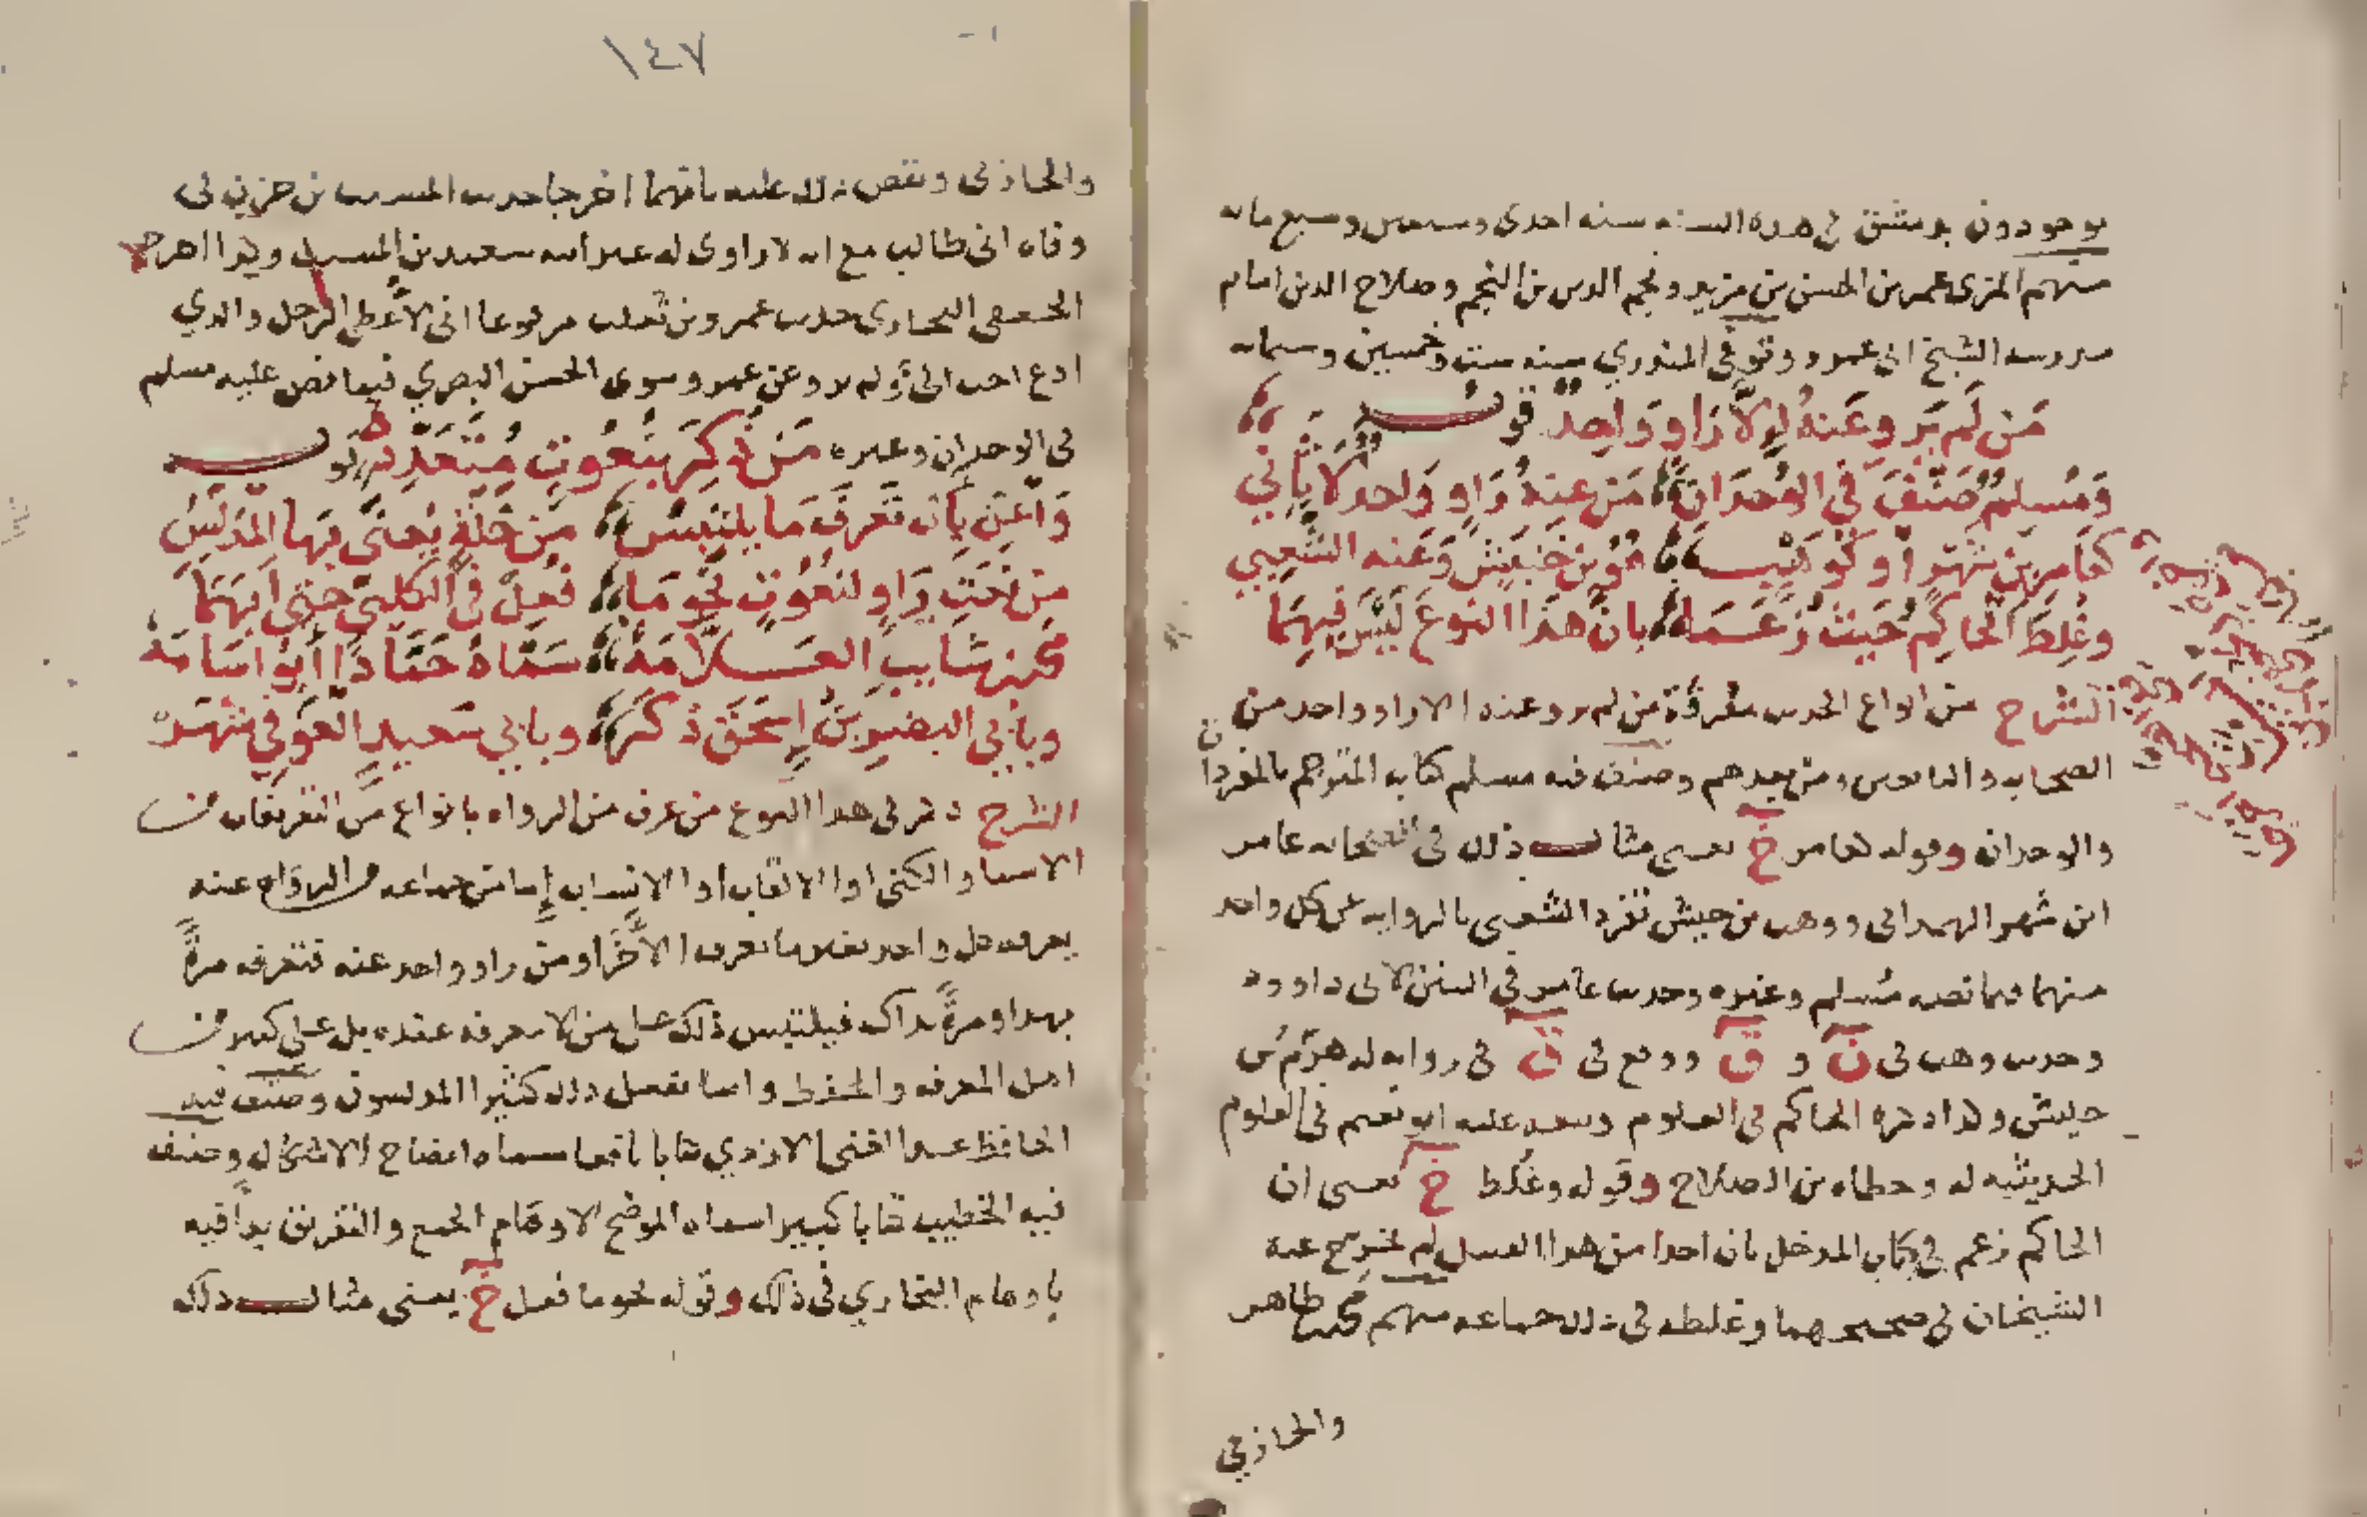 موجودون بدمشق في هذه السنه سنه احدى وسبعين وسبع مايه
منهم المزى عمر بن الحسن بن مزيد ونجم الدين بن النجم وصلاح الدين امام
مدرسه الشيخ ابى عمر وتوفي المنوري سنه ست وخمسين وستمايه
مَن لَم يَروِ عَنهُ إِلاَّ رَاوٍ وَاحِدٌ قوت
وَمُسلِمٌ صَنَّفَ في الوُحدَانِ مَن عنهُ رَاوٍ وَاحد لاَ ثَانِي
كعَامرِ بنِ شَهرٍ أو كَوَهبِ هُوَ بن خَنبَشٍ وَعَنه الشَّعبِي
وغُلِّطَ الحَاكِم حَيثُ زَعَمَا بان هَذَا النوعَ لَيسَ فِيهِمَا
الشرح من انواع الحديث معرفة من لم يرو عنه الا راو واحد من
الصحابه والتابعين ومن بعدهم وصنف فيه مسلم كتابه المترجم بالمفردا
ن
والوحدان وقوله كعامر خ يعني مثال ذلك في الصحابه عامر
ابن شهر الهمدانى ووهب بن خنبش تفرد الشعبى بالروايه عن كل واحد
منهما فيما نصه مسلم وغيره وحديث عامر في السنن لابى داوود
وحديث وهب فى ن و ق ووقع فى ق فى روايه له هرم بن
خنبش وكذا ذكره الحاكم فى العلوم وتبعه عليه ابو نعيم فى العلوم
الحديثيه له وخطاه بن الصلاح وقوله وغلط خ يعنى ان
الحاكم زعم في كتاب المدخل بان احدا من هذا القبيل لم يخرج عنه
الشيخان في صحيحيهما وغلطه فى ذلك جماعه منهم محمد بن طاهر
والحازمي
١٤٧
والحازمى ونقض ذلك عليه بانهما اخرجا حديث المسيب بن حزن فى
وفاه ابى طالب مع انه لا راوى له غير ابنه سعيد بن المسيب وكذا اخرج
البخارى حديث عمرو بن تغلب مرفوعا انى لاعطي الرجل والذي
ادع احب الى ولم يرو عن عمرو سوى الحسن البصري فيما نص عليه مسلم
فى الوحدان وغيره مَن ذُكِرَ بنُعُوتٍ مُتَعَدِّدَةٍ قوت
وَاعنَ بِأن تَعرفَ مَا يَلتَبِسُ مِن خَلَّةٍ يُعنَى بِهَا المُدَلِّسُ
مِن نَعتِ رَاوٍ لنُعُوتٍ نَحوَ مَا فُعِلَ في الكَلبيِّ حَتى أبهِمَا
محمد بنِ سَايبِ العَلاَّمَهْ سَمَّاهُ حَمَّادًا أبُو اسَامَهْ
وبأبي النضرِ بنُ إسحَقَ ذَكَرْ وبابي سَعيدٍ العَوفِي شَهَرْ
الشرح ذكر فى هذا النوع من عرف من الرواه بانواع من التعريفات من
الاسما والكنى او الالقاب او الانساب إما من جماعه من الرواه عنه
يعرفه كل واحد بغير ما عرفه الآخر او من راو واحد عنه فتعرفه مرةً
بهذا ومرةً بذاك فيلتبس ذلك على من لا معرفه عنده بل على كثير من
اهل المعرفه والحفظ وانما يفعل ذلك كثيرا المدلسون وصنف فيه
الحافظ عبد الغنى الازدي كتابا نافعا سماه ايضاح الاشكال وصنف
فيه الخطيب كتابا كبيرا سماه الموضح لاوهام الجمع والتفريق بدا فيه
باوهام البخاري فى ذلك وقوله نحو ما فعل خ يعنى مثال ذلك